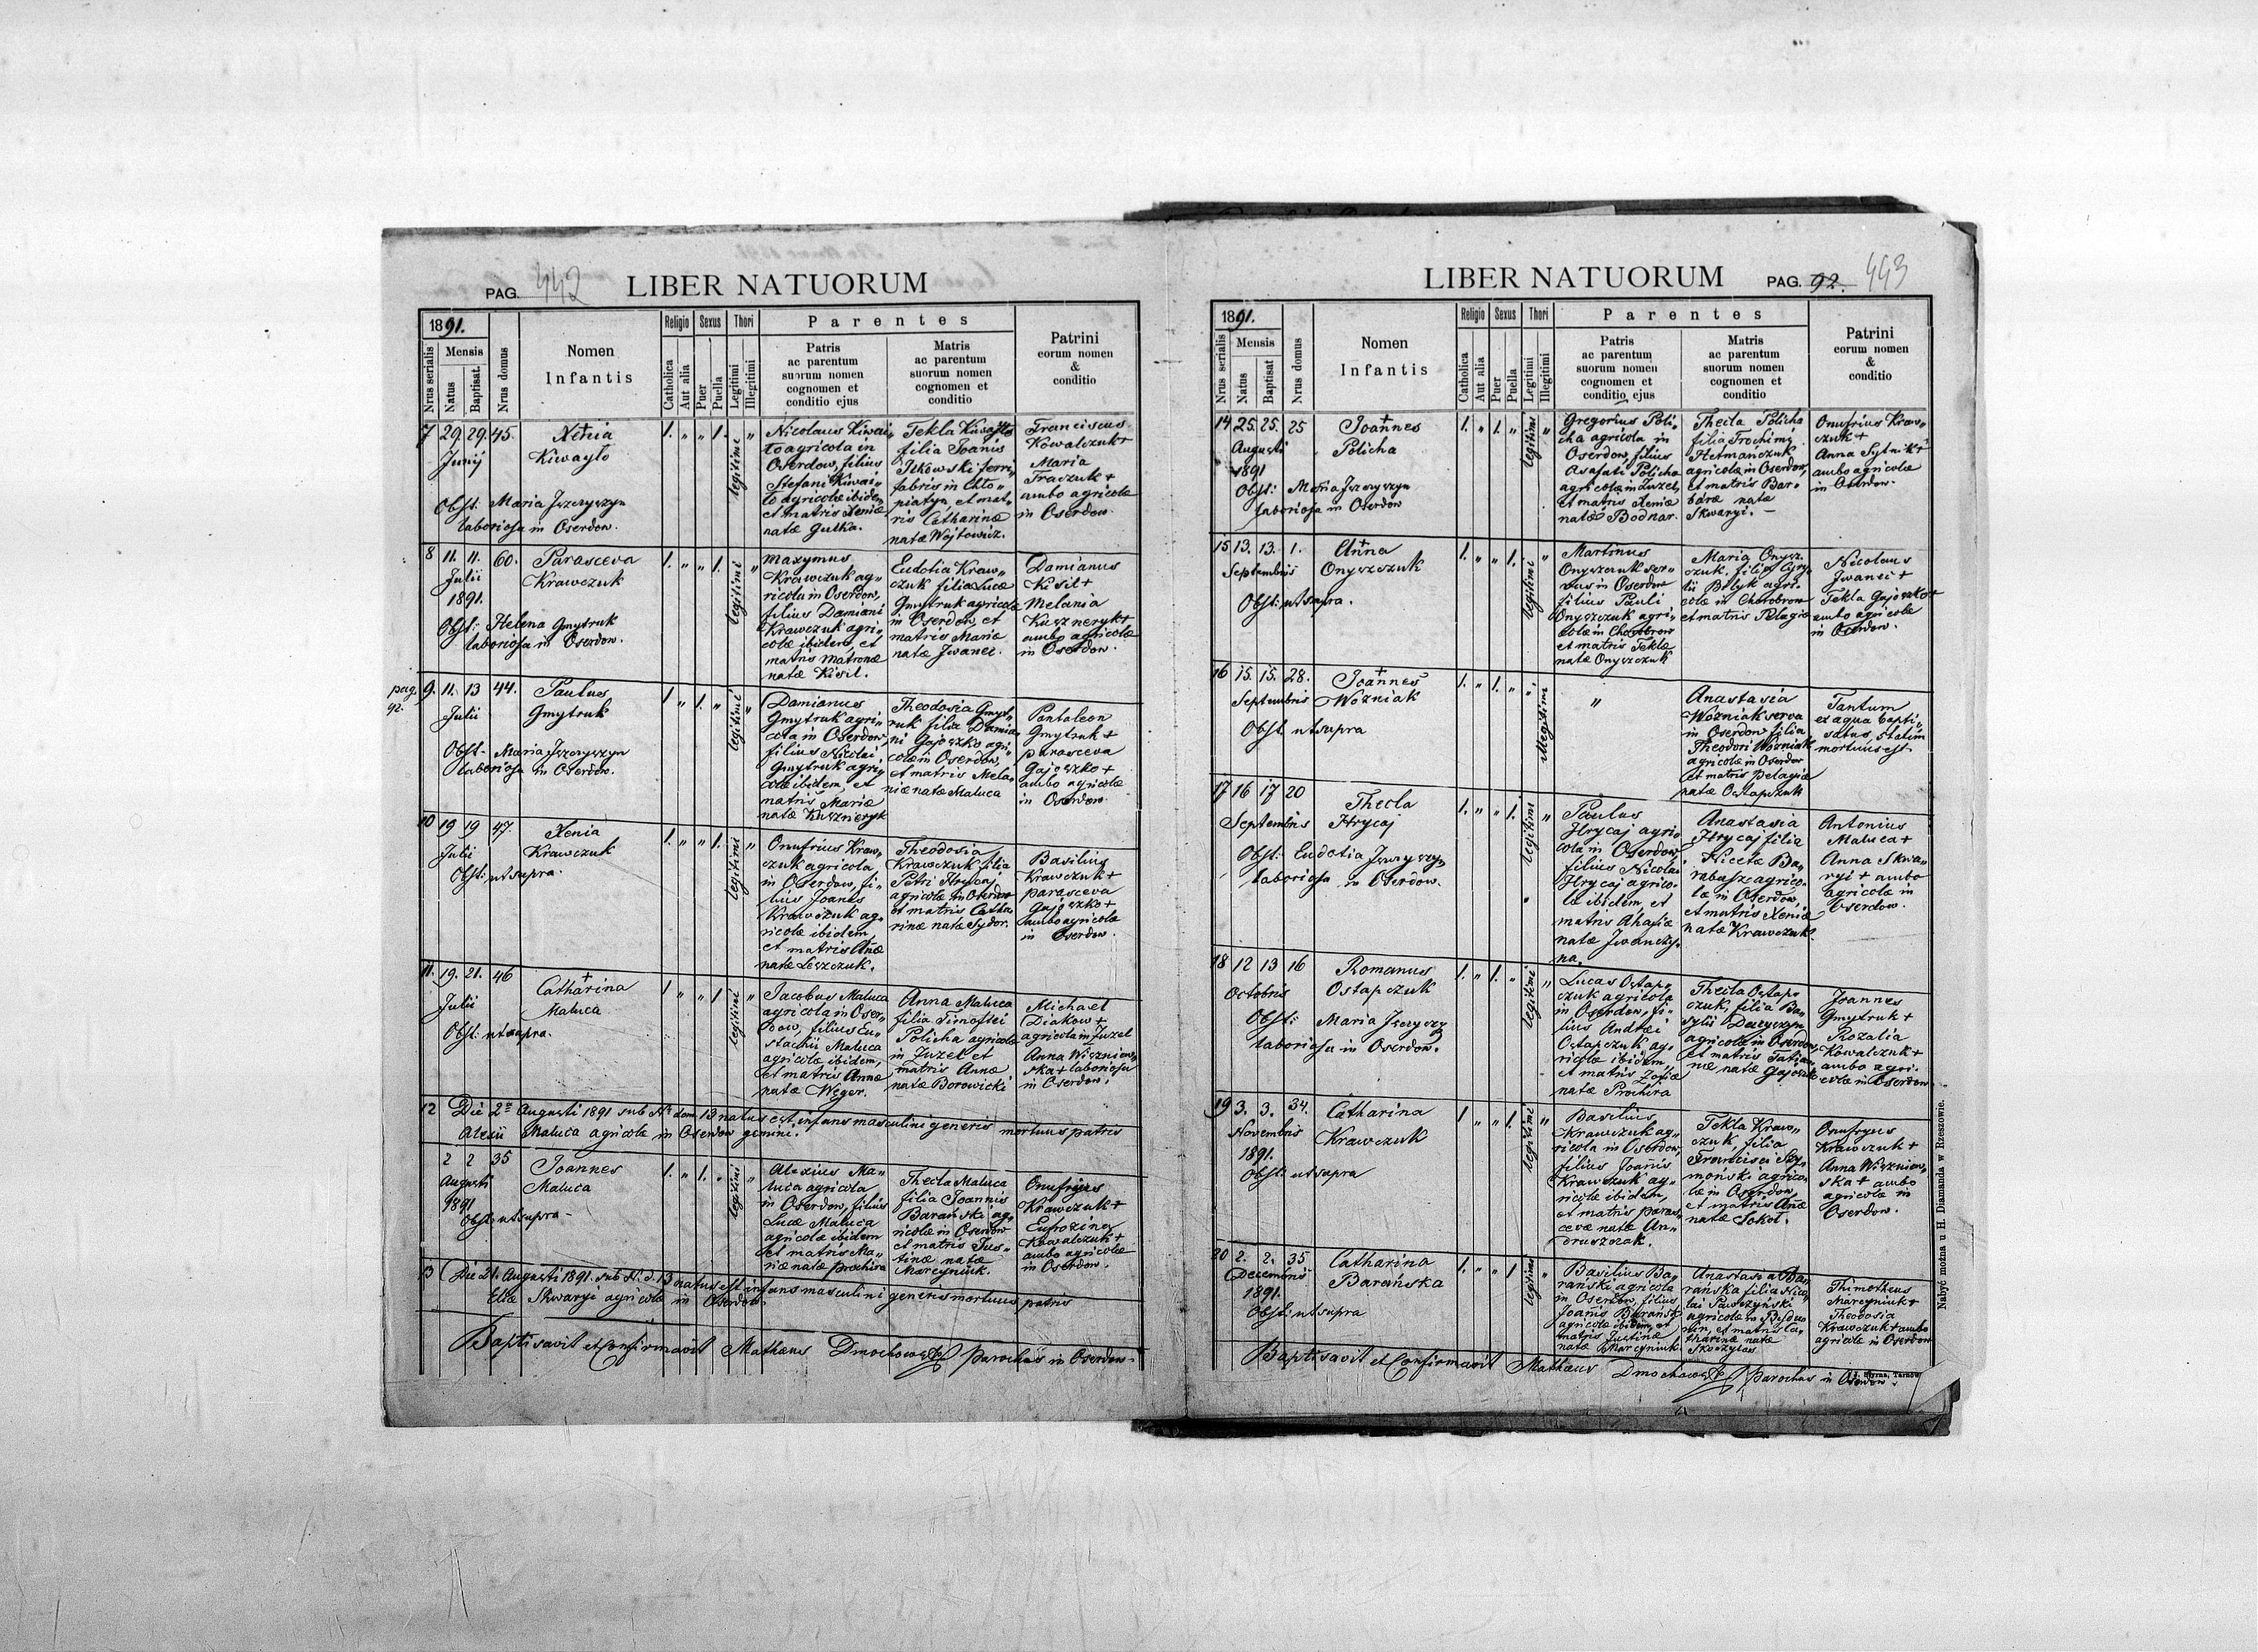 LIBER NATUORUM
PAG. 442
1891.
Nrus serialis
Mensis
Natus
Baptisat.
Nrus domus
Nomen
Infantis
Religio
Catholica
Aut alia
Sexus
Puer
Puella
Thori
Legitimi
Illegitimi
Parentes
Patris
ac parentum
suorum nomen
cognomen et
conditio ejus
Matris
ac parentum
suorum nomen
cognomen et
conditio
Patrini
eorum nomen
&
conditio
7 29. 29. 45.
Junij
Xenia
Kiwayło
Obst. Maria
laboriosa in Oserdow.
1. „ „ 1. legitimi „
Nicolaus Kiwai„
ło agricola in
Oserdow, filius
Stefani Kiwai„
ło agricolæ ibidem
et matris Xeniæ
natæ Gutka.
Tekla Kiwayło
filia Joanis
Ilkowski ferri„
fabris in Chło„
piatyn, et mat„
ris Catharinæ
natæ Wojtowicz.
Franciscus
Kowalczuk +
Maria
Fraczuk +
ambo agricolæ
in Oserdow.
8 11. 11. 60.
Julii
1891.
Parasceva
Krawczuk
Obst: Helena Gmytruk
laboriosa in Oserdow.
1. „ „ 1. legitimi „
Maxymus
Krawczuk ag„
ricola in Oserdow,
filius Damiani
Krawczuk agri„
colæ ibidem, et
matris Matronæ
natæ Kisil.
Eudotia Kraw„
czuk filia Lucæ
Gmytruk agricolæ
in Oserdow, et
matris Mariæ
natæ Jwanec.
Damianus
Kisil +
Melania
Kuszneryk +
ambo agricolæ
in Oserdow.
pag.
92.
9. 11. 13 44.
Julii
Paulus
Gmytruk
Obst. Maria
laboriosa in Oserdow.
1 „ 1. „ legitimi „
Damianus
Gmytruk agri„
cola in Oserdow
filius Nicolai
Gmytruk agri„
colæ ibidem, et
matris Mariæ
natæ Kuszneryk
Theodosia Gmyt„
ruk filia Damia„
ni Gajoszko agri„
colæ in Oserdow,
et matris Mela„
niæ natæ Maluca
Pantaleon
Gmytruk +
parasceva
Gajoszko +
ambo agricolæ
in Oserdow.
10 19 19 47.
Julii
Xenia
Krawczuk
Obst: ut supra.
1. „ „ 1. legitimi „
Onufrius Kraw„
czuk agricola
in Oserdow, fi„
lius Joanis
Krawczuk ag„
ricolæ ibidem,
et matris Añæ
natæ Leszczuk.
Theodosia
Krawczuk filia
Petri Hrycaj
agricolæ in Oserdow
et matris Catha„
rinæ natæ Sydor.
Basilius
Krawczuk +
parasceva
Gajoszko +
ambo agricolæ
in Oserdow.
11. 19. 21. 46
Julii
+
Catharina
Maluca
Obst: ut supra.
1 „ „ 1. legitimi „
Jacobus Maluca
agricola in Oser„
dow, filius Eu„
stachii Maluca
agricolæ ibidem,
et matris Annæ
natæ Węger.
Anna Maluca
filia Timoftei
Policha agricolæ
in Żuzel et
matris Annæ
natæ Borowicki
Michael
Diakow +
agricola in Żuzel
Anna Wiszniew„
ska + laboriosa
in Oserdow.
12 Die 2ª Augusti 1891 sub Nº dom. 13 natus est infans masculini generis mortuus patris
Alexii Maluca agricolæ in Oserdow gemini.
2 2 35
Augusti
1891
Joannes
Maluca
Obst: ut supra
1. „ 1. „ legitimi „
Alexius Ma„
luca agricola
in Oserdow, filius
Lucæ Maluca
agricolæ ibidem
et matris Ma„
riæ natæ Prochira
Thecla Maluca
filia Joannis
Barański ag„
ricolæ in Oserdow
et matris Jus„
tinæ natæ
Marcyniuk.
Onufrius
Krawczuk +
Eufrozina
Kowalczuk +
ambo agricolæ
in Oserdow.
13 Die 21. Augusti 1891. sub N. d. 13 natus est infans masculini generis mortuus patris
Eliæ Skwaryi agricolæ in Oserdow.
Baptisavit et Confirmavit Mathæus Dmochowski parochus in Oserdow
LIBER NATUORUM
PAG. 92. 443
1891.
Nrus serialis
Mensis
Natus
Baptisat
Nrus domus
Nomen
Infantis
Religio
Catholica
Aut alia
Sexus
Puer
Puella
Thori
Legitimi
Illegitimi
Parentes
Patris
ac parentum
suorum nomen
cognomen et
conditio ejus
Matris
ac parentum
suorum nomen
cognomen et
conditio
Patrini
eorum nomen
&
conditio
14 25. 25. 25
Augusti
1891
+
Joannes
Policha
Obst: Maria
laboriosa in Oserdow
1. „ 1. „ legitimi „
Gregorius Poli„
cha agricola in
Oserdow, filius
Asafati Policha
agricolæ in Żuzel,
et matris Xeniæ
natæ Bodnar.
Thecla Policha
filia Trochimy
Hetmańczuk
agricolæ in Oserdow,
et matris Bar„
baræ natæ
Skwaryi.
Onufrius Kraw„
czuk +
Anna Sytnik +
ambo agricolæ
in Oserdow.
15 13. 13. 1.
Septembris
+
Anna
Onyszczuk
Obst: ut supra.
1. „ „ 1. legitimi „
Martinus
Onyszczuk ser„
vus in Oserdow
filius Pauli
Onyszczuk agri„
colæ in Chorobrow
et matris Teklæ
natæ Onyszczuk
Maria Onysz„
czuk, filia
agri„
colæ in Chorobrow
et matris Pelagiæ
Nicolaus
Jwanec +
Tekla Gajoszko +
ambo agricolæ
in Oserdow.
16 15. 15. 28.
Septembris
+
Joannes
Wozniak
Obst. ut supra
1. „ 1. „ „ illegitimi
„
Anastasia
Wozniak serva
in Oserdow filia
Theodori Wozniak
agricolæ in Oserdow
et matris Pelagiæ
natæ Ostapczuk
Tantum
ex aqua bapti„
satus statim
mortuus est.
17 16 17 20
Septembris
Thecla
Hrycaj
Obst: Eudotia
laboriosa in Oserdow.
1. „ „ 1. legitimi „
Paulus
Hrycaj agri„
cola in Oserdow,
filius Nicolai
Hrycaj agrico„
læ ibidem, et
matris Ahafiæ
natæ Jwanczy„
na.
Anastasia
Hrycaj filia
Nicetæ Ba„
rabasz agrico„
læ in Oserdow,
et matris Xeniæ
natæ Krawczuk.
Antonius
Maluca +
Anna Skwa„
ryi + ambo
agricolæ in
Oserdow.
18 12 13 16
Octobris
Romanus
Ostapczuk
Obst: Maria
laboriosa in Oserdow.
1. „ 1. „ legitimi „
Lucas Ostap„
czuk agricola
in Oserdow, fi„
lius Andrei
Ostapczuk ag„
ricolæ ibidem,
et matris Zofiæ
natæ Prochira
Thecla Ostap„
czuk, filia Ba„
sylii
agricolæ in Oserdow,
et matris Tatia„
næ natæ Gajoszko
Joannes
Gmytruk +
Rozalia
Kowalczuk +
ambo agri„
colæ in Oserdow
19 3. 3. 34.
Novembris
1891.
Catharina
Krawczuk
Obst: ut supra
1 „ „ 1. legitimi „
Basilius
Krawczuk ag„
ricola in Oserdow,
filius Joañis
Krawczuk ag„
ricolæ ibidem,
et matris paras„
cevæ natæ An„
druszczak.
Tekla Kraw„
czuk, filia
Francisci Szy„
moński agrico„
læ in Oserdow,
et matris Añæ
natæ Sokoł.
Onufryus
Krawczuk +
Anna Wiszniew„
ska + ambo
agricolæ in
Oserdow.
20 2. 2. 35
Decembris
1891.
Catharina
Barańska
Obst. ut supra
1. „ „ 1 legitimi „
Basilius Ba„
rański agricola
in Oserdow, filius
Joañis Barański
agricolæ ibidem, et
matris Justinæ
natæ Marcyniuk.
Anastasia Ba„
rańska filia Nico„
lai Pawczyński
agricolæ in
et matris Ca„
tharinæ natæ
Thimotheus
Marcyniuk +
Theodosia
Krawczuk + ambo
agricolæ in Oserdow
Baptisavit et Confirmavit Mathæus Dmochowski parochus in Oserdow.
Nabyć można u H. Diamanda w Rzeszowie.